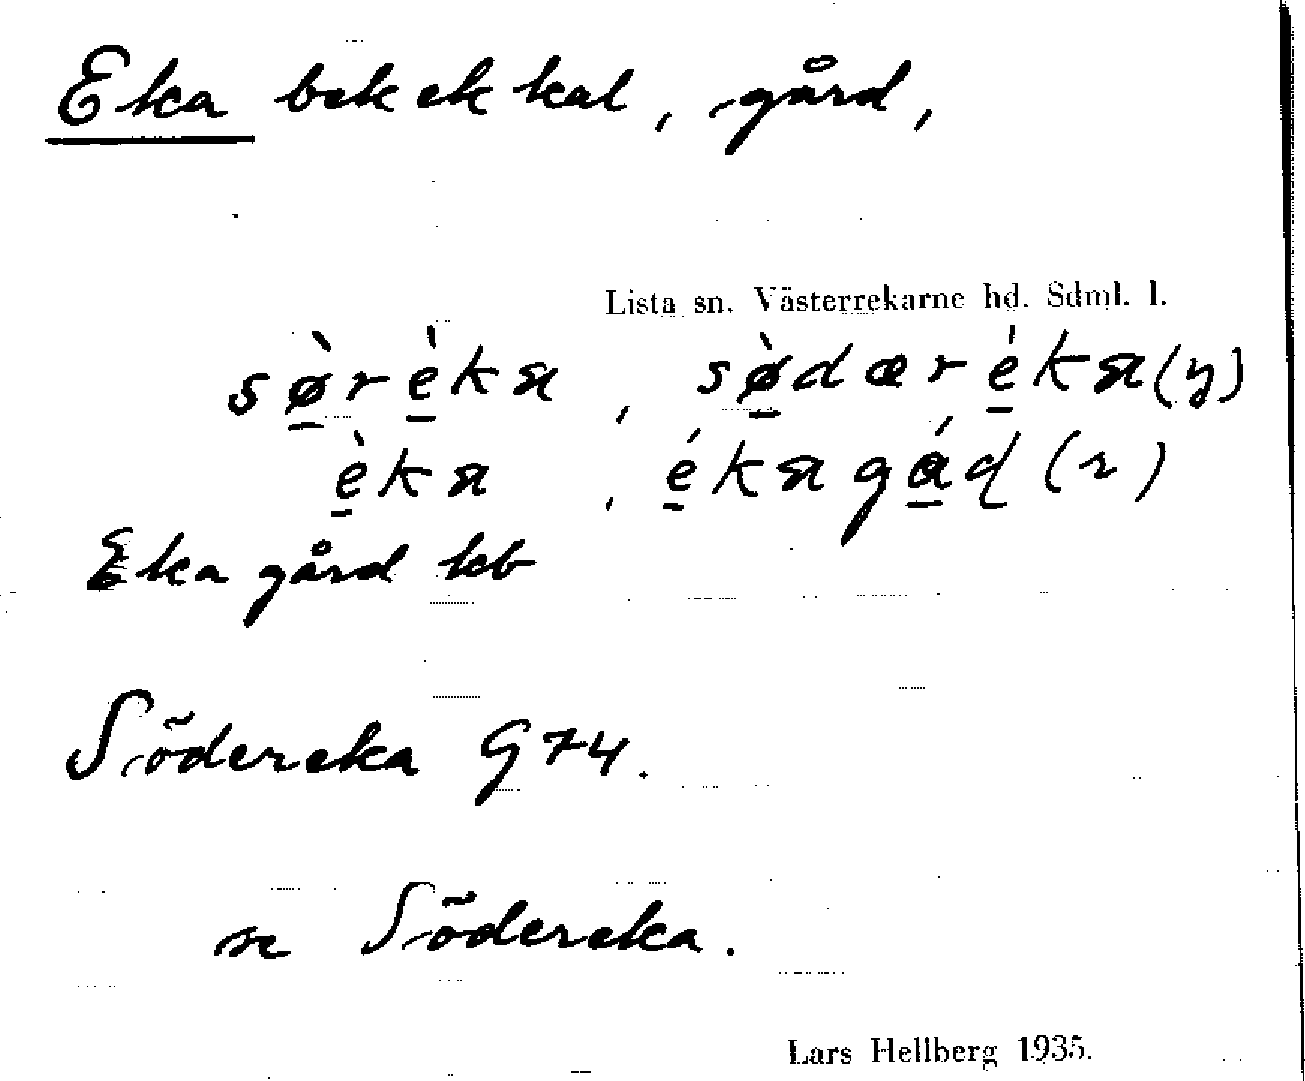 Eka bek ek kal, gård,
Lista sn. Västerrekarne hd. Sdml. l.
sø̀rèka, sø̀dæréka(y)
èka, ékagáḍ(r)
Eka gård kb
Södereka G 74.
se Södereka.
Lars Hellberg 1935.